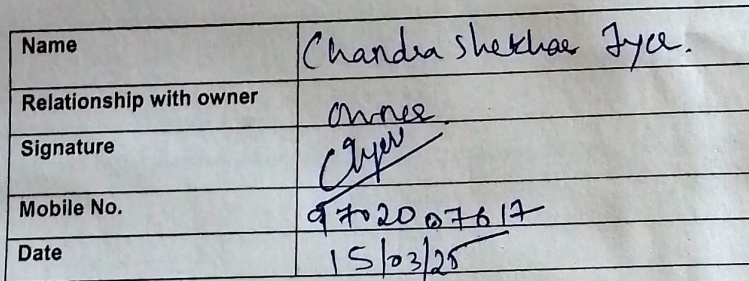 Name Chandra Shekhar Iyer.
Relationship with owner owner.
Signature CIyer
Mobile No. 9702007617
Date 15/03/25